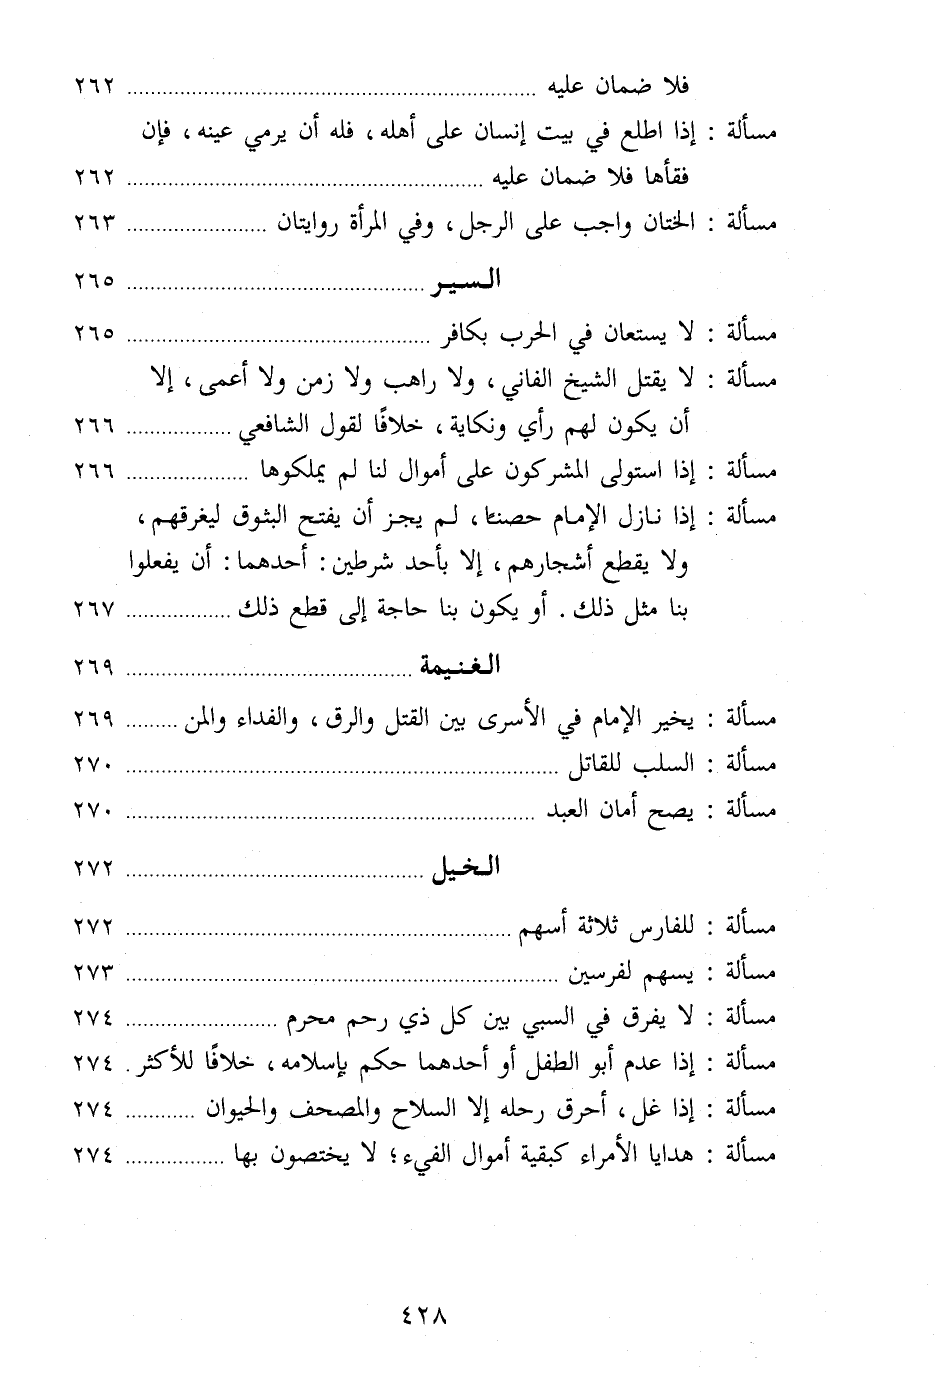 فلا ضمان عليه ........ ٢٦٢
مسألة : إذا اطلع في بيت إنسان على أهله، فله أن يرمي عينه، فإن
فقأها فلا ضمان عليه ........ ٢٦٢
مسألة : الختان واجب على الرجل، وفي المرأة روايتان ........ ٢٦٣
السير ........ ٢٦٥
مسألة : لا يستعان في الحرب بكافر ........ ٢٦٥
مسألة : لا يقتل الشيخ الفاني، ولا راهب ولا زمن ولا أعمى، إلا
أن يكون لهم رأي ونكاية، خلافًا لقول الشافعي ........ ٢٦٦
مسألة : إذا استولى المشركون على أموال لنا لم يملكوها ........ ٢٦٦
مسألة : إذا نازل الإمام حصنًا، لم يجز أن يفتح البثوق ليغرقهم،
ولا يقطع أشجارهم، إلا بأحد شرطين: أحدهما: أن يفعلوا
بنا مثل ذلك. أو يكون بنا حاجة إلى قطع ذلك ........ ٢٦٧
الغنيمة ........ ٢٦٩
مسألة : يخير الإمام في الأسرى بين القتل والرق، والفداء والمن ........ ٢٦٩
مسألة : السلب للقاتل ........ ٢٧٠
مسألة : يصح أمان العبد ........ ٢٧٠
الخيل ........ ٢٧٢
مسألة : للفارس ثلاثة أسهم ........ ٢٧٢
مسألة : يسهم لفرسين ........ ٢٧٣
مسألة : لا يفرق في السبي بين كل ذي رحم محرم ........ ٢٧٤
مسألة : إذا عدم أبو الطفل أو أحدهما حكم بإسلامه، خلافًا للأكثر . ٢٧٤
مسألة : إذا غل، أحرق رحله إلا السلاح والمصحف والحيوان ........ ٢٧٤
مسألة : هدايا الأمراء كبقية أموال الفيء؛ لا يختصون بها ........ ٢٧٤
٤٢٨